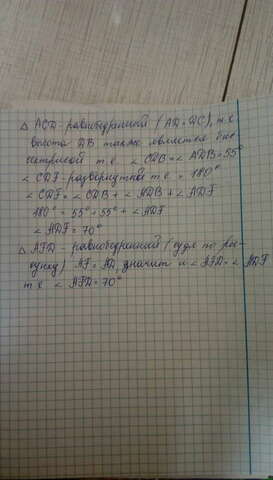 △ ACD - равнобедренный (AD=DC), т.е
высота DB также является бис
сектрисой т.е. ∠CDB=∠ADB=55°
∠CDF-развернутый т.е. = 180°
∠CDF=∠CDB+∠ADB+∠ADF
180°=55°+55°+∠ADF
∠ADF=70°
△ AFD - равнобедренный (судя по ри-
сунку) AF=AD, значит и ∠AFD=∠ADF
т.е ∠AFD=70°